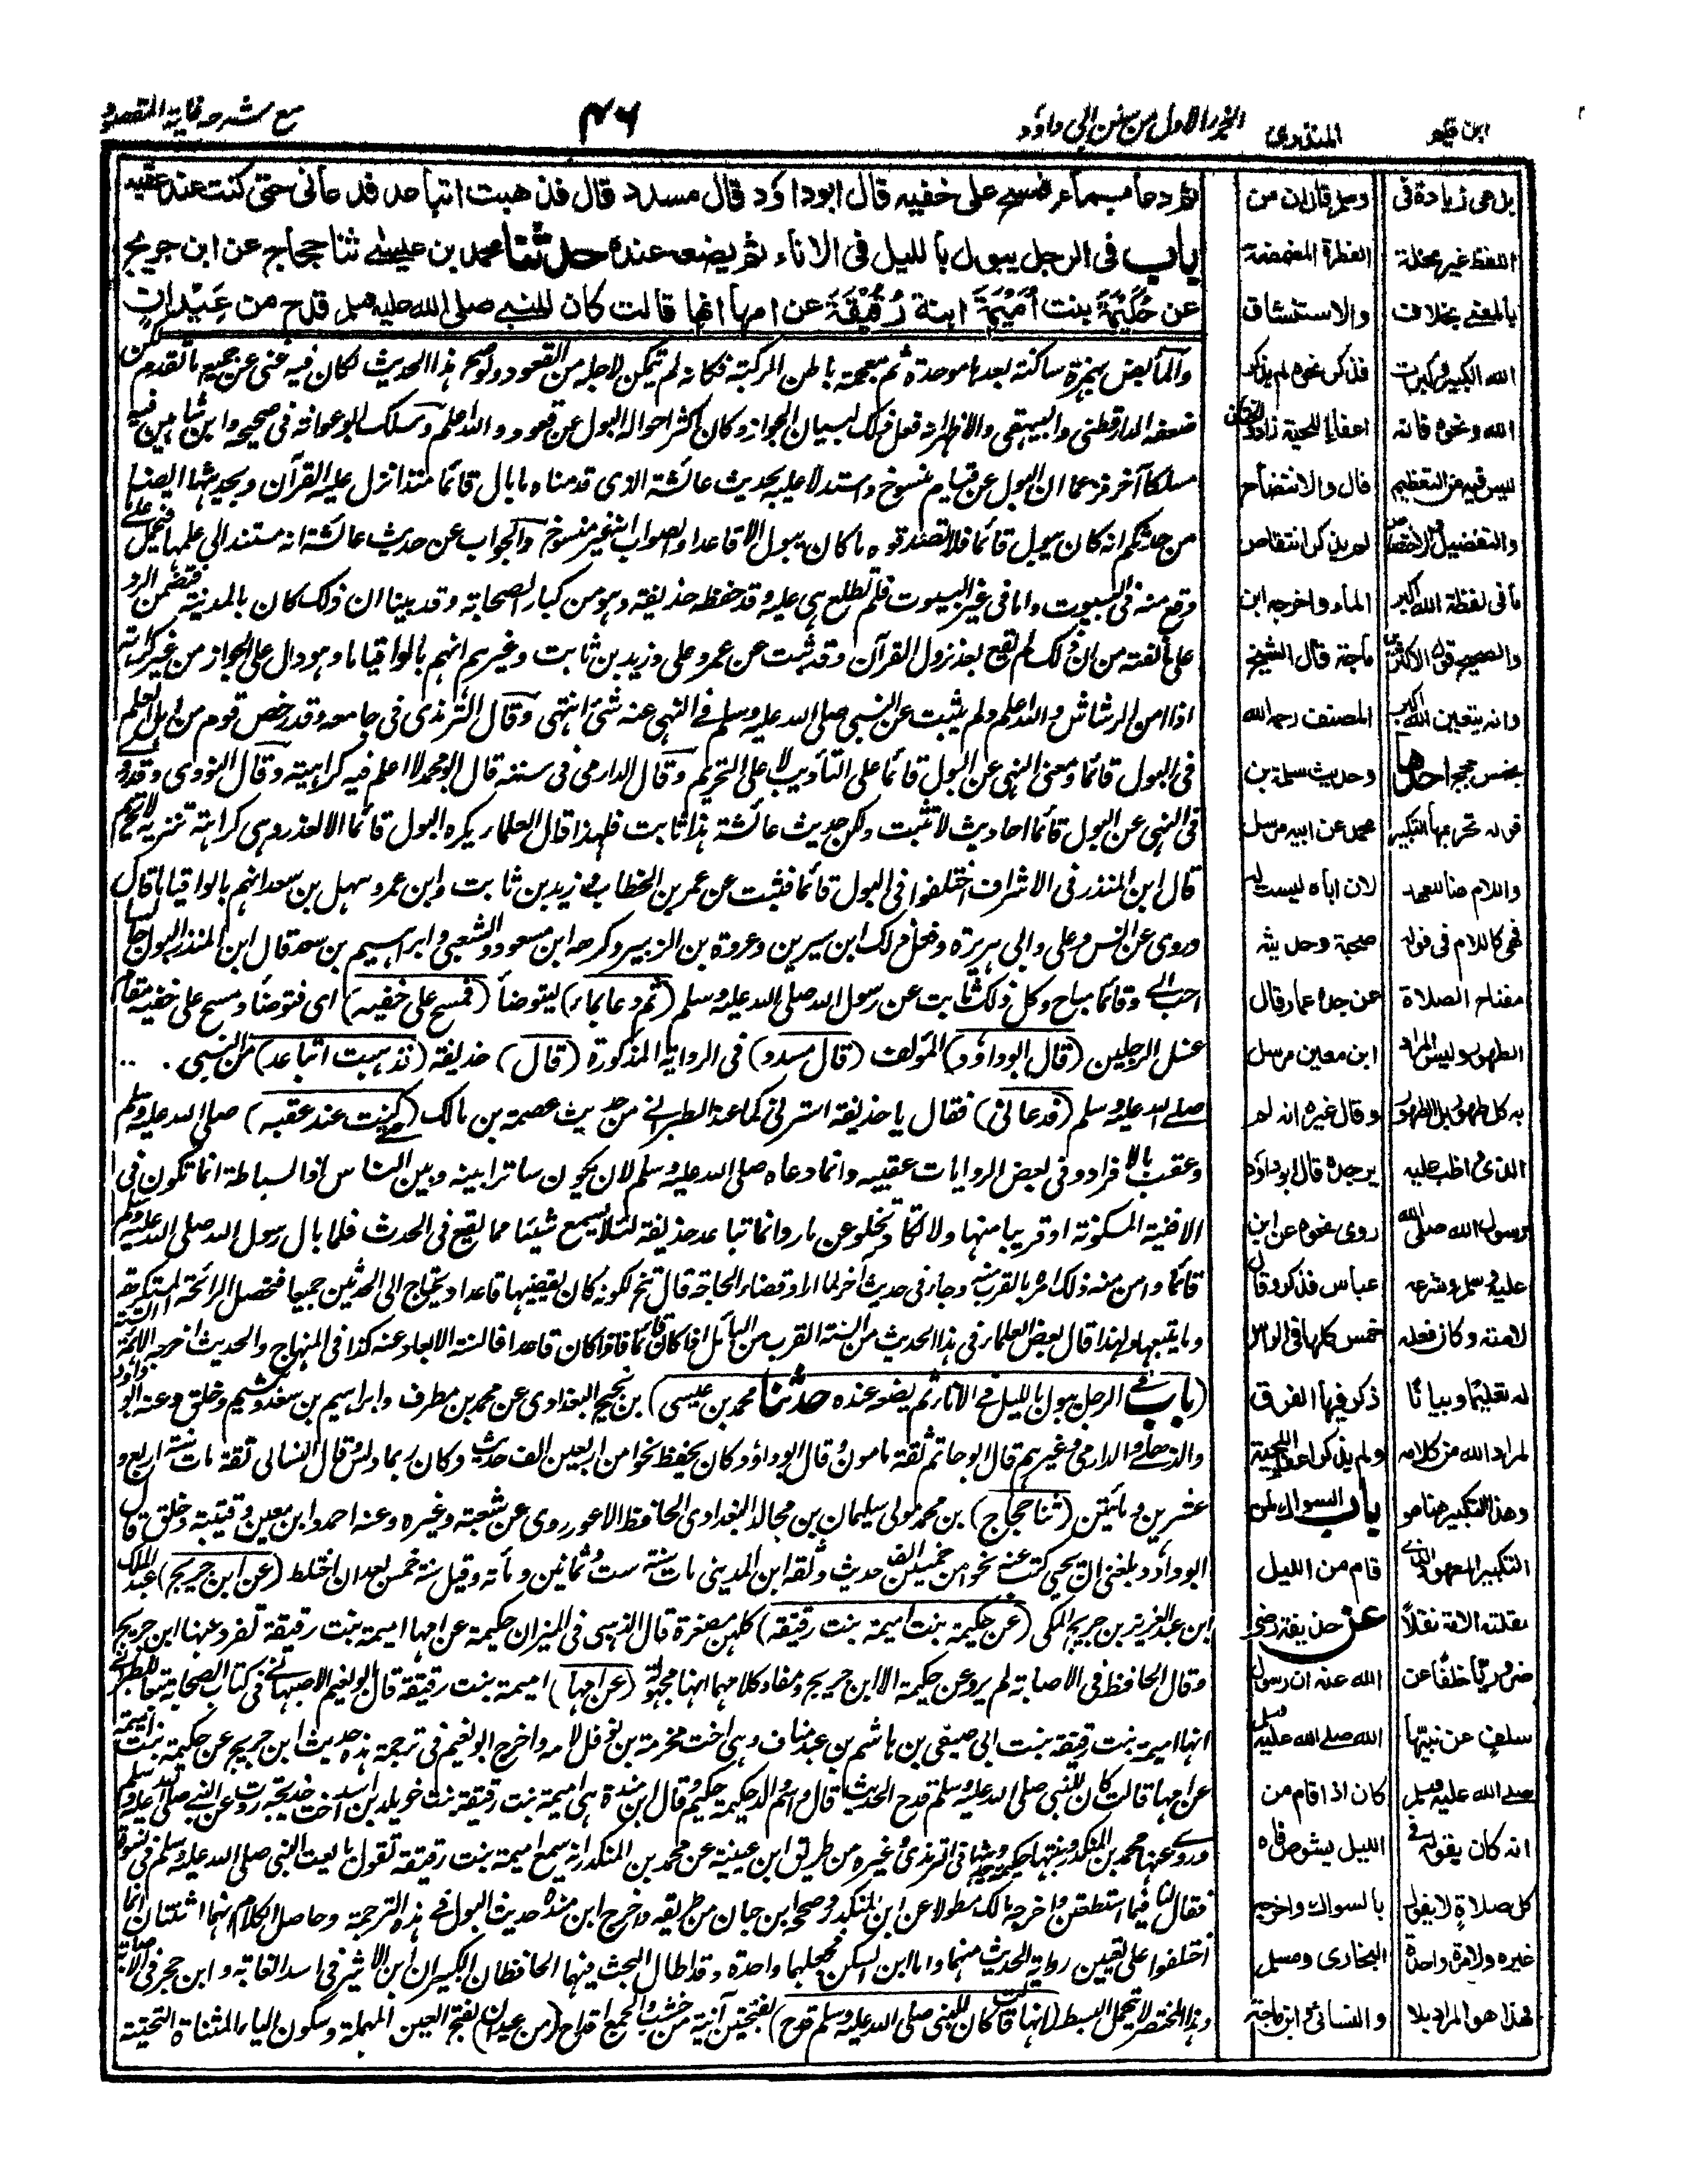 ابن قيم
المنذري
الجزء الاول من سنن ابي داؤد
٤٦
مع شرحه غاية المقصود
ثم دعا بماء فمسح على خفيه قال ابو داؤد قال مسدد قال فذهبت اتباعد فدعاني حتى كنت عند عقبه
باب في الرجل يبول بالليل في الاناء ثم يضعه عنده حدثنا محمد بن عيسى ثنا حجاج عن ابن جريج
عن حُكَيْمَةَ بنت أُمَيْمَةَ ابنة رُقَيْقَةَ عن امها انها قالت كان للنبي صلى الله عليه وسلم قدح من عَيْدان
والمأبض بهمزة ساكنة بعدها موحدة ثم معجمة باطن الركبة فكانه لم يتمكن لاجله من القعود ولو صح هذا الحديث لكان فيه غنى عن جميع ما تقدم لكن
ضعفه الدارقطني والبيهقي والاظهر انه فعل ذلك لبيان الجواز وكان اكثر احواله البول عن قعود والله اعلم وسلك ابو عوانة في صحيحه وابن شاهين فيه
مسلكا آخر فزعما ان البول عن قيام منسوخ واستدلا عليه بحديث عائشة الذي قدمناه ما بال قائما منذ انزل عليه القرآن وبحديثها ايضا
من حدثكم انه كان يبول قائما فلا تصدقوه ما كان يبول الا قاعدا والصواب انه غير منسوخ والجواب عن حديث عائشة انه مستند الى علمها فيحمل على
ما وقع منه في البيوت واما في غير البيوت فلم تطلع هي عليه وقد حفظه حذيفة وهو من كبار الصحابة وقد بينا ان ذلك كان بالمدينة فتضمن الرد
على ما نفته من ان ذلك لم يقع بعد نزول القرآن وقد ثبت عن عمر وعلي وزيد بن ثابت وغيرهم انهم بالوا قياما وهو دال على الجواز من غير كراهة
اذا امن الرشاش والله اعلم ولم يثبت عن النبي صلى الله عليه وسلم في النهي عنه شئ انتهى وقال الترمذي في جامعه وقد رخص قوم من اهل العلم
في البول قائما ومعنى النهي عن البول قائما على التأديب لا على التحريم وقال الدارمي في سننه قال ابو محمد لا اعلم فيه كراهية وقال النووي وقد روي
في النهي عن البول قائما احاديث لا تثبت ولكن حديث عائشة هذا ثابت فلهذا قال العلماء يكره البول قائما الا لعذر وهي كراهة تنزيه لا تحريم
قال ابن المنذر في الاشراف اختلفوا في البول قائما فثبت عن عمر بن الخطاب وزيد بن ثابت وابن عمر وسهل بن سعد انهم بالوا قياما قال
وروي عن انس وعلي وابي هريرة وفعل ذلك ابن سيرين وعروة بن الزبير وكرهه ابن مسعود والشعبي وابراهيم بن سعد قال ابن المنذر البول جالسا
احب الي وقائما مباح وكل ذلك ثابت عن رسول الله صلى الله عليه وسلم (ثم دعا بماء) ليتوضأ (فمسح على خفيه) اي فتوضأ ومسح على خفيه مقام
غسل الرجلين (قال ابو داؤد) المؤلف (قال مسدد) في الرواية المذكورة (قال) حذيفة (فذهبت اتباعد) من النبي
صلى الله عليه وسلم (فدعاني) فقال يا حذيفة استرني كما عند الطبراني من حديث عصمة بن مالك (حتى كنت عند عقبه) صلى الله عليه وسلم
وعقب بالافراد وفي بعض الروايات عقبيه وانما دعاه صلى الله عليه وسلم لان يكون ساترا بينه وبين الناس اذ السباطة انما تكون في
الافنية المسكونة او قريبا منها ولا تكاد تخلو عن مار وانما تباعد حذيفة لئلا يسمع شيئا مما يقع في الحدث فلما بال رسول الله صلى الله عليه وسلم
قائما وامن منه ذلك امره بالقرب منه وجاء في حديث آخر لما اراد قضاء الحاجة قال تنح لكونه كان يقضيها قاعدا ويحتاج الى الحدثين جميعا فتحصل الرائحة المستكرهة
وما يتبعها ولهذا قال بعض العلماء في هذا الحديث من السنة القرب من البائل اذا كان قائما فاذا كان قاعدا فالسنة الابعاد عنه كذا في المنهاج والحديث اخرجه الائمة الستة
(باب في الرجل يبول بالليل في الاناء ثم يضعه عنده حدثنا محمد بن عيسى) بن نجيح البغدادي عن محمد بن مطرف وابراهيم بن سعد وهشيم وخلق وعنه ابو داود
والذهلي والدارمي وغيرهم قال ابو حاتم ثقة مامون وقال ابو داؤد كان يحفظ نحوا من اربعين الف حديث وكان ربما دلس وقال النسائي ثقة مات سنة اربع و
عشرين ومائتين (ثنا حجاج) بن محمد مولى سليمان بن مجالد البغدادي الحافظ الاعور روى عن شعبة وغيره وعنه احمد وابن معين وقتيبة وخلق قال
ابو داؤد بلغني ان يحيى كتب عنه نحوا من خمسين الف حديث وثقه ابن المديني مات سنة ست ومأتين وقيل سنة خمس بعد ان اختلط (عن ابن جريج) عبد الملك
ابن عبد العزيز بن جريج المكي (عن حكيمة بنت اميمة بنت رقيقة) كلهن مصغرة قال الذهبي في الميزان حكيمة عن امها اميمة بنت رقيقة تفرد عنها ابن جريج
وقال الحافظ في الاصابة لم يرو عن حكيمة الا ابن جريج ومفاد كلامهما انها مجهولة (عن امها) اميمة بنت رقيقة قال ابو نعيم الاصبهاني في كتاب الصحابة تبعا للطبراني
انها اميمة بنت رقيقة بنت ابي صيفي بن هاشم بن عبد مناف وهي اخت مخرمة بن نوفل لامه واخرج ابو نعيم في ترجمة هذه حديث ابن جريج عن حكيمة بنت اميمة
عن امها قالت كان للنبي صلى الله عليه وسلم قدح الحديث قال واسم والد حكيمة حكيم وقال ابن مندة هي اميمة بنت رقيقة بنت خويلد بن اسد اخت خديجة روت عن النبي صلى الله عليه وسلم
وروى عنها محمد بن المنكدر وبنتها حكيمة وحديثها في الترمذي وغيره من طريق ابن عيينة عن محمد بن المنكدر انه سمع اميمة بنت رقيقة تقول بايعت النبي صلى الله عليه وسلم في نسوة
فقال لنا فيما استطعتن واخرجه مالك مطولا عن ابن المنكدر وصححه ابن حبان من طريقه واخرج ابن مندة حديث البول في هذه الترجمة وحاصل الكلام انهما اثنتان انما
اختلفوا على تعيين رواية الحديث منهما واما ابن السكن فجعلهما واحدة وقد اطال البحث فيهما الحافظان الكبيران ابن الاثير في اسد الغابة وابن حجر في الاصابة
وهذا المختصر لا يحتمل البسط (انها قالت كان للنبي صلى الله عليه وسلم قدح) بفتحتين آنية من خشب والجمع اقداح (من عيدان) بفتح العين المهملة وسكون الياء المثناة التحتية
وسلم قال ان من
الفطرة المضمضة
والاستنشاق
فذكر نحوه لم يذكر
اعفاء اللحية زاد والختان
قال والانتضاح
لم يذكر انتقاص
الماء واخرجه ابن
ماجة قال الشيخ
المصنف رحمه الله
وحديث سلمة بن
محمد عن ابيه مرسل
لان اباه ليست له
صحبة وحديثه
عن جده عمار قال
ابن معين مرسل
وقال غيره انه لم
ير جده قال ابو داؤد
روى نحوه عن ابن
عباس فذكر وقال
خمس كلها في الراس
ذكر فيها الفرق
ولم يذكر اعفاء اللحية
باب السواك لمن
قام من الليل
عن حذيفة رضي
الله عنه ان رسول
الله صلى الله عليه وسلم
كان اذا قام من
الليل يشوص فاه
بالسواك واخرجه
البخاري ومسلم
والنسائي وابن ماجة
بل هي زيادة في
اللفظ غير مخلة
بالمعنى بخلاف
الله الكبير وكبرت
الله ونحوه فانه
ليس فيه من التعظيم
والتفضيل والاختصاص
ما في لفظة الله اكبر
والصحيح قول الاكثرين
وانه يتعين الله اكبر
بخمس حجج احدها
قوله تحريمها التكبير
واللام هنا للعهد
فهي كاللام في قوله
مفتاح الصلاة
الطهور وليس المراد
به كل طهور بل الطهور
الذي واظب عليه
رسول الله صلى الله
عليه وسلم وشرعه
لامته وكان فعله
له تعليما وبيانا
لمراد الله من كلامه
وهذا التكبير هنا هو
التكبير المعهود الذي
نقلته الامة نقلًا
ضروريًا خلفًا عن
سلفٍ عن نبيّها
صلى الله عليه وسلم
انه كان يقوله في
كل صلاةٍ لا يقول
غيره ولا مرة واحدة
فهذا هو المراد بلا